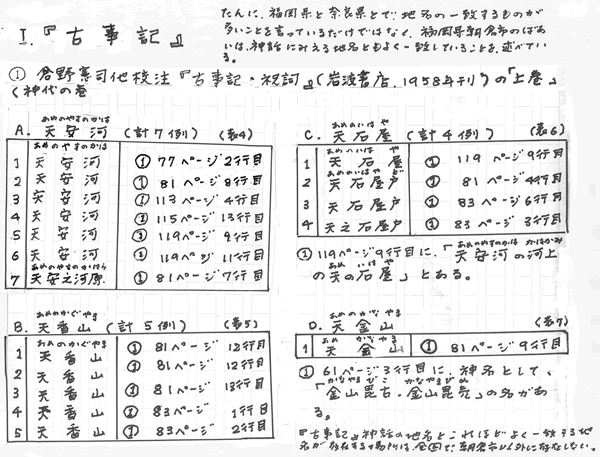 I.『古事記』
たんに、福岡県と奈良県とで地名の一致するものが
多いことを言っているだけではなく、福岡県朝倉市のばあ
いは、神話にみえる地名ともよく一致していることを、述べてい
る。
① 倉野憲司他校注『古事記・祝詞』(岩波書店、1958年刊)の「上巻」
(神代の巻
A. 天安河 (計7例) (表4)
あめのやすのかは
あめのやすのかは
1 天安河 ① 77ページ2行目
2 天安河 ① 81ページ8行目
3 天安河 ① 113ページ4行目
4 天安河 ① 115ページ13行目
5 天安河 ① 119ページ9行目
6 天安河 ① 119ページ11行目
あめのやすのかはら
7 天安之河原 ① 81ページ7行目
あめのかぐやま
B. 天香山 (計5例) (表5)
あめのかぐやま
1 天香山 ① 81ページ 12行目
2 天香山 ① 81ページ 12行目
3 天香山 ① 81ページ 13行目
4 天香山 ① 83ページ 1行目
5 天香山 ① 83ページ 2行目
あめのいはや
C. 天石屋 (計4例) (表6)
あめのいはや
1 天石屋 ① 119ページ9行目
あめのいはやど
2 天石屋戸 ① 81ページ4行目
3 天石屋戸 ① 83ページ6行目
4 天之石屋戸 ① 83ページ3行目
あめのやすのかは かはかみ
①119ページ9行目に、「天安河の河上
あめ いはや
の天の石屋」とある。
あめのかなやま
D. 天金山 (表7)
あめ かなやま
1 天金山 ① 81ページ9行目
① 61ページ3行目に、神名として、
かなやまびこ かなやまびめ
「金山毘古・金山毘売」の名があ
る。
『古事記』神話の地名とこれほどよく一致する地
名が存在する場所は、全国で、朝倉市以外に存在しない。